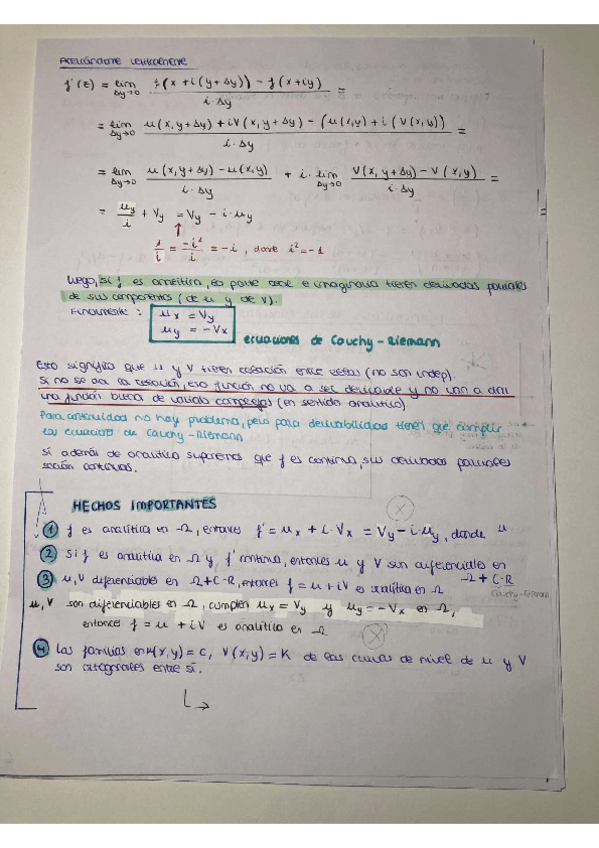 ACERCÁNDOME VERTICALMENTE
f'(z) = lim Δy→0 f(x+i(y+Δy)) - f(x+iy) / i·Δy =
= lim Δy→0 u(x,y+Δy) + iV(x,y+Δy) - (u(x,y) + i(V(x,y)) / i·Δy =
= lim Δy→0 u(x,y+Δy) - u(x,y) / i·Δy + i· lim Δy→0 V(x,y+Δy) - V(x,y) / i·Δy =
= uy/i + Vy = Vy - i·uy
1/i = -i²/i = -i, donde i² = -1
Luego, si f es analítica, su parte real e imaginaria tienen derivadas parciales
de sus componentes (de u y de V).
FINALMENTE: ux = Vy
uy = -Vx
ecuaciones de Cauchy-Riemann
Esto significa que u y V tienen relación entre ellas (no son indep).
Si no se da la relación, esa función no va a ser derivable y no van a dar
una función buena de variable compleja (en sentido analítico)
Para continuidad no hay problema, pero para derivabilidad tienen que cumplir
las ecuaciones de Cauchy-Riemann
Si además de analítica suponemos que f es continua, sus derivadas parciales
serán continuas.
HECHOS IMPORTANTES
① f es analítica en Ω, entonces f' = ux + i·Vx = Vy - i·uy, donde u
② Si f es analítica en Ω y f' continua, entonces u y V son diferenciables en
Ω + C-R
③ u, V diferenciables en Ω + C-R, entonces f = u + iV es analítica en Ω
Cauchy-Riemann
u, V son diferenciables en Ω, cumplen ux = Vy y uy = -Vx en Ω,
entonces f = u + iV es analítica en Ω
④ Las familias en u(x,y) = c, V(x,y) = K de las curvas de nivel de u y V
son ortogonales entre sí.